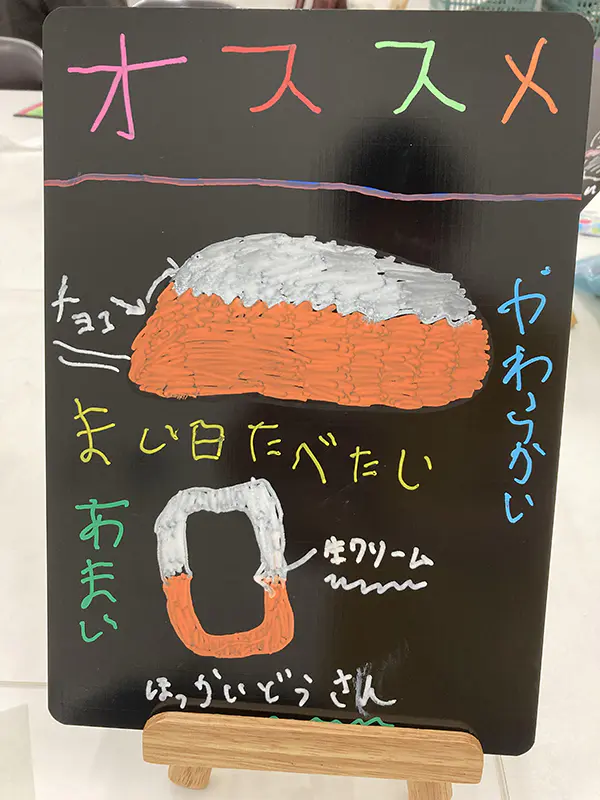 オススメ
チョコ
やわらかい
まい日たべたい
あまい
生クリーム
ほっかいどうさん